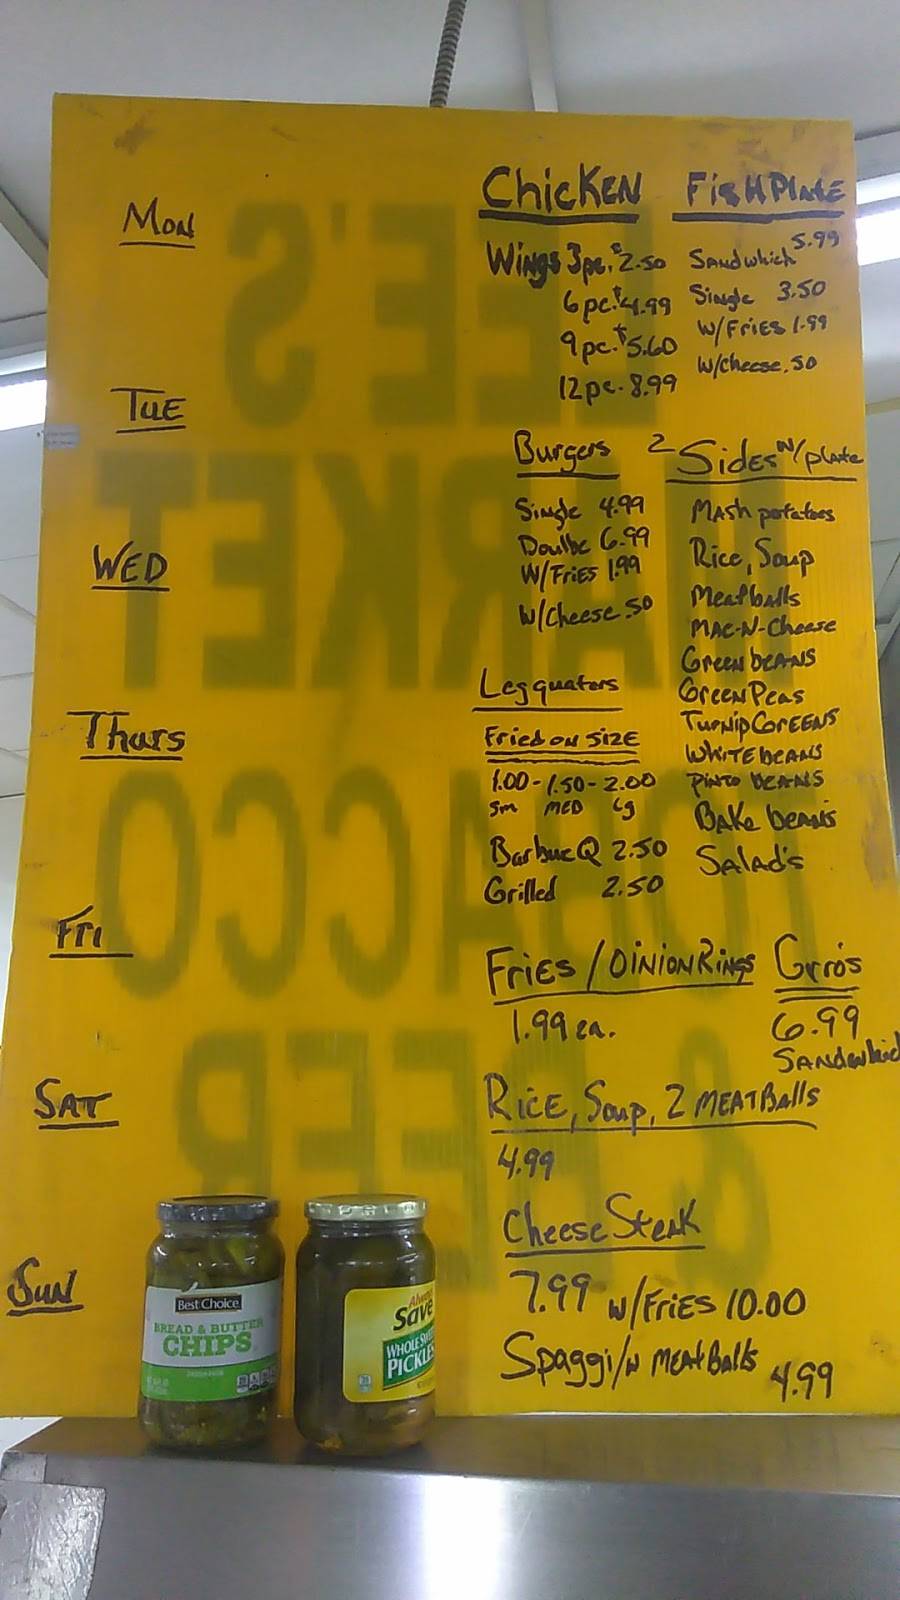 Mon
TUE
WED
Thurs
FRI
SAT
SUN
ChicKEN
Wings 3pc. $2.50
6 pc. $4.99
9 pc. $5.60
12 pc. 8.99
FisHPlate
Sandwhich 5.99
Single 3.50
W/FRIES 1.99
W/Cheese .50
Burgers
Single 4.99
Doulbe 6.99
W/FRIES 1.99
W/Cheese .50
2 Sides w/plate
MAsh portatoes
Rice, Soup
Meatballs
MAC-N-Cheese
Green bEANS
GreenPeas
TurnipGREENS
WHITE bEANS
PiNTO bEANS
BAKe beans
Salad's
Leg quaters
Fried on SIZE
1.00 - 1.50 - 2.00
sm MED Lg
BarbueQ 2.50
Grilled 2.50
FRiES / OiNiON RiNgs
1.99 ea.
Gyro's
6.99
SANDwhich
RiCE, Soup, 2 MEATBAlls
4.99
CheeseSteak
7.99 w/FRiES 10.00
Spaggi/w MEATBAlls 4.99
LEE'S
MARKET
TOBACCO
& BEER
Best Choice
BREAD & BUTTER
CHIPS
Always
Save
WHOLE SWEET
PICKLES